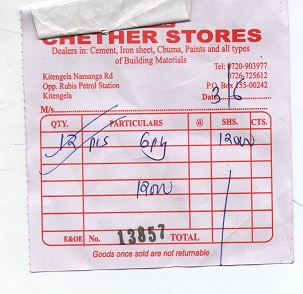 CHETHER STORES
Dealers in: Cement, Iron sheet, Chuma, Paints and all types
of Building Materials
Kitengela Namanga Rd
Opp. Rubis Petrol Station
Kitengela
Tel: 0720-903977
0726-725612
P.O. Box 755-00242
Date 3/6
M/s
QTY. PARTICULARS @ SHS. CTS.
12 pcs 6py 1200
1200
E&OE No. 13857 TOTAL
Goods once sold are not returnable